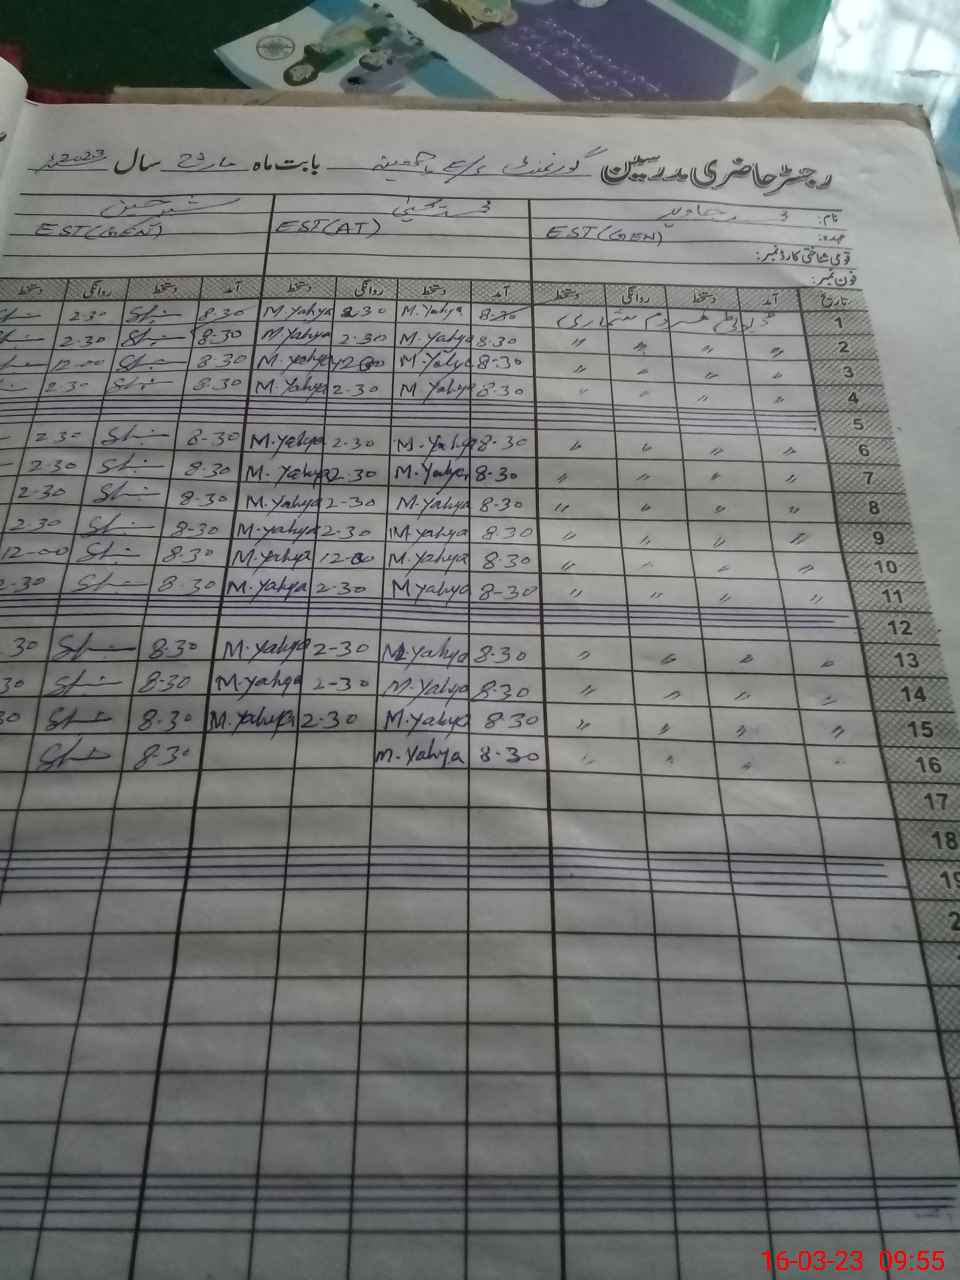 رجسٹر حاضری مدرسین گورنمنٹ بابت ماہ مارچ سال 2023
نام: محمد جاوید محمد یحییٰ شبیر حسین
عہدہ: EST(GEN) EST(AT) EST(GEN)
قومی شناختی کارڈ نمبر:
فون نمبر:
تاریخ آمد دستخط روانگی دستخط آمد دستخط روانگی دستخط آمد دستخط روانگی دستخط
1 ڈیوٹی مردم شماری 8-30 M. Yahya 2-30 M. Yahya 8-30 2-30
2 " " " " 8-30 M. Yahya 2-30 M. Yahya 8-30 2-30
3 " " " " 8-30 M. Yahya 12-00 M. Yahya 8-30 12-00
4 " " " " 8-30 M. Yahya 2-30 M. Yahya 8-30 2-30
5
6 " " " " 8-30 M. Yahya 2-30 M. Yahya 8-30 2-30
7 " " " " 8-30 M. Yahya 2-30 M. Yahya 8-30 2-30
8 " " " " 8-30 M. Yahya 2-30 M. Yahya 8-30 2-30
9 " " " " 8-30 M. Yahya 2-30 M. Yahya 8-30 2-30
10 " " " " 8-30 M. Yahya 12-00 M. Yahya 8-30 12-00
11 " " " " 8-30 M Yahya 2-30 M. Yahya 8-30 2-30
12
13 " " " " 8-30 M. Yahya 2-30 M. Yahya 8-30 30
14 " " " " 8-30 M. Yahya 2-30 M. Yahya 8-30 30
15 " " " " 8-30 M. Yahya 2-30 M. Yahya 8-30 30
16 " " " " 8-30 M. Yahya 8-30
17
18
19
2
16-03-23 09:55